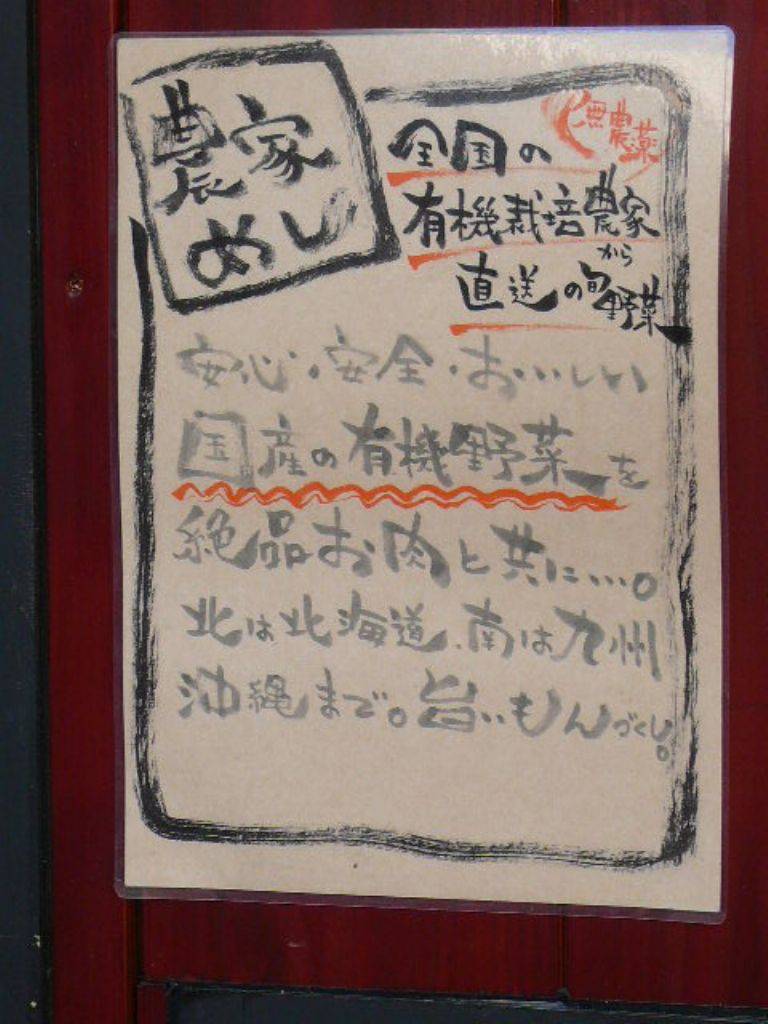 農家
めし
無農薬
全国の
有機栽培農家
から
直送の旬野菜
安心・安全・おいしい
国産の有機野菜を
絶品お肉と共に…。
北は北海道、南は九州
沖縄まで。旨いもんづくし。